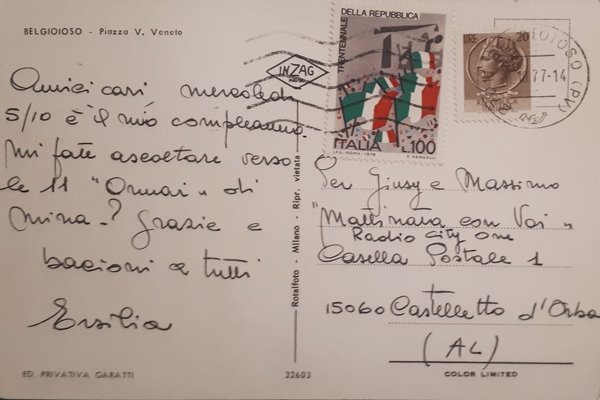 BELGIOIOSO - Piazza V. Veneto
Amici cari mercoledì
5/10 è il mio compleanno.
mi fate ascoltare verso
le 11 "Ormai" di
mina-? Grazie e
bacioni a tutti
Ersilia
ED. PRIVATIVA GARATTI
INZAG
Rotalfoto - Milano - Ripr. vietata
32603
TRENTENNALE DELLA REPUBBLICA
ITALIA L.100
LIRE 20
77-14
(PV)
Per Giusy e Massimo
"Mattinata con Voi"
Radio City One
Casella Postale 1
15060 Castelletto d'Orba
(AL)
COLOR LIMITED